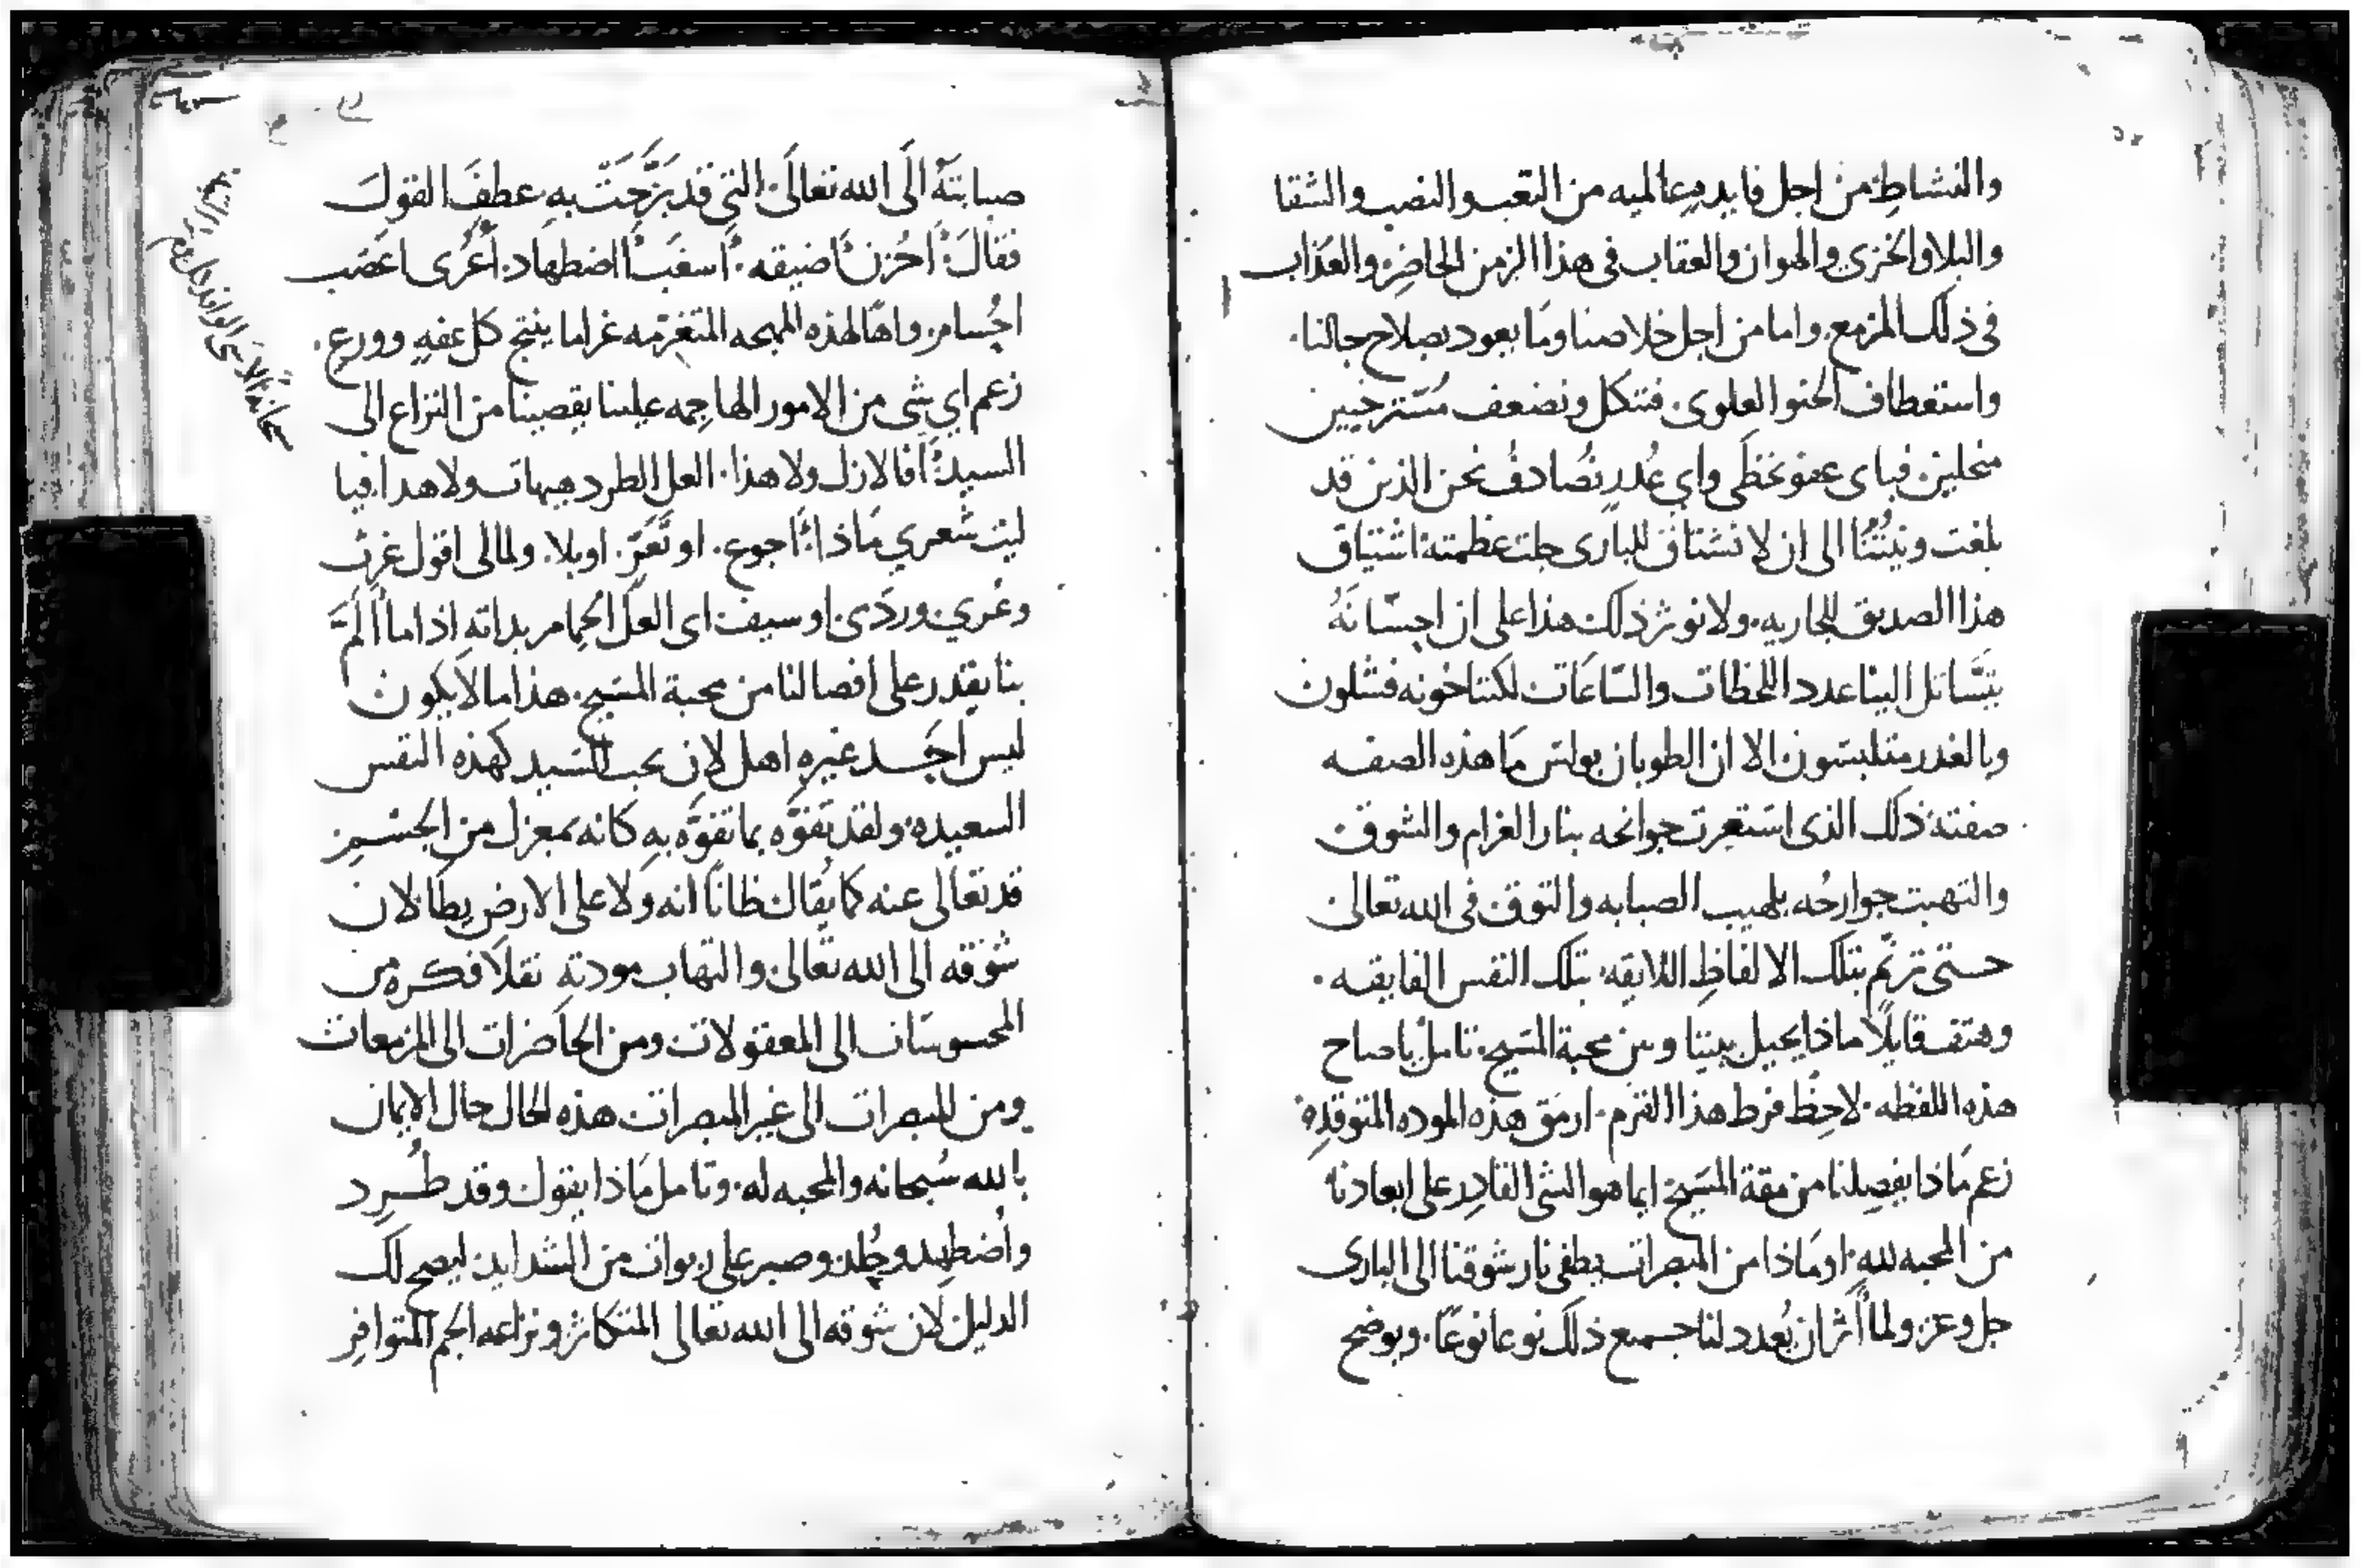 والنشاط من اجل فايدةٍ عالميه من التعب والنصب والشقا
والبلا والخزي والهوان والعقاب في هذا الزمن الحاضر والعذاب
في ذلك المزمع. واما من اجل خلاصنا وما يعود بصلاح حالنا.
واستعطاف الحنو العلوي. فنتكل ونضعف مسترخيين
منحلين فباى عفو نحظى واي عُذر نُصادف نحن الذين قد
بلغت ونيتُنا الى ان لا نشتاق للبارى جلت عظمته اشتياق
هذا الصديق للجاريه. ولا نوثر ذلك هذا على ان احسانَهُ
يتساتل الينا عدد اللحظات والساعات لكننا خونه فشلون
وبالغدر متلبسون الا ان الطوبان بولس ما هذه الصفه
صفته ذلك الذى استعرت جوانحه بنار الغرام والشوق
والتهبت جوارحُه بلهيب الصبابه والتوق فى الله تعالى
حتى ترنّم بتلك الالفاظ اللايقه بتلك النفس الفايقه.
وهتف قايلًا ماذا يحيل بيننا وبين محبة المسيح. تامل يا صاح
هذه اللفظه. لاحِظ فرط هذا القرم. ارمق هذه الموده المتوقدِه
زعم ماذا يفصِلنا من مقة المسيح ايما هوا الشى القادِر على ابعادنا
من المحبه لله. او ماذا من المبصرات يطفى نار شوقنا الى البارى
جل وعز. ولما أثر ان يُعدد لنا جميع ذلك نوعا نوعًا. ويوضح
صبابتَهُ الَى الله تعالَى التى قد برّحَتْ به. عطفَ القول
فقالَ. أحُزن أضيقه. أسغَب أاضطهاد. أعُرى اعضب
احُسام. واهًا لهذه المهجه المتغرّمه غراما ينتج كل عفهٍ وورع.
زعم اي شى من الامور الهاجِمه علينا يقصينا من النزاع الى
السيد أفالازل ولا هذا. العل الطرد هيهات ولا هدا. فيا
ليت شعري ماذا أاجوع. او تعَرّ. او بلا. ولما لى اقول غرث
وعُري وردَى او سيف اى العلّ الحِمام بداته اذا ما ألَمّ
بنا يقدر على افصالنا من محبة المسيح. هذا ما لا يكون
ليس احَد غيره اهل لان يحب السيد كهذه النفس
السعيده. ولقد تفوّه بما تفوّه به كانه بمعزل من الجسم
قد تعالى عنه كما يُقال ظانًا انه ولا على الارض يطا. لان
شوقه الى الله تعالى والتهاب مودته نقلا فكره من
المحسوسات الى المعقولات ومن الحاضرات الى المزمعات
ومن المبصرات الى غير المبصرات هذه الحال حال الايمان
بالله سُبحانه والمحبه له. وتامل ماذا يقول وقد طُرِد
واُضطهِد وجُلد وصبر على ربوات من الشدايد ليصح لك
الدليل لان شوقه الى الله تعالى المتكاثر ونزاعه الجم المتوافِر